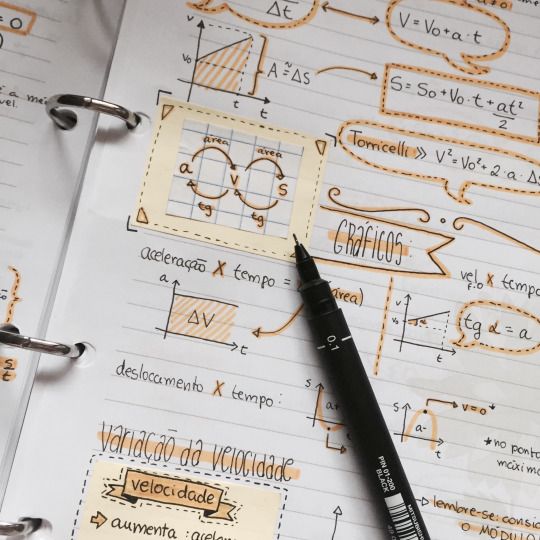 = 0
Δt
V = Vo + a · t
v
Vo
t
t
A ≅ ΔS
S = So + Vo · t + at²
2
Torricelli >> V² = Vo² + 2 · a · ΔS
área
área
a
V
S
tg
tg
GRÁFICOS:
aceleração X tempo =
área)
a
ΔV
t
vel X tempo
v
Vo
t
tg α = a
s
t
deslocamento X tempo:
S
a+
S
a-
t
v = 0
*no ponto
máxim
variação da velocidade
velocidade
aumenta : aceler
lembre-se: consid
O MÓDULO
0.1
PIN 01-200
BLACK